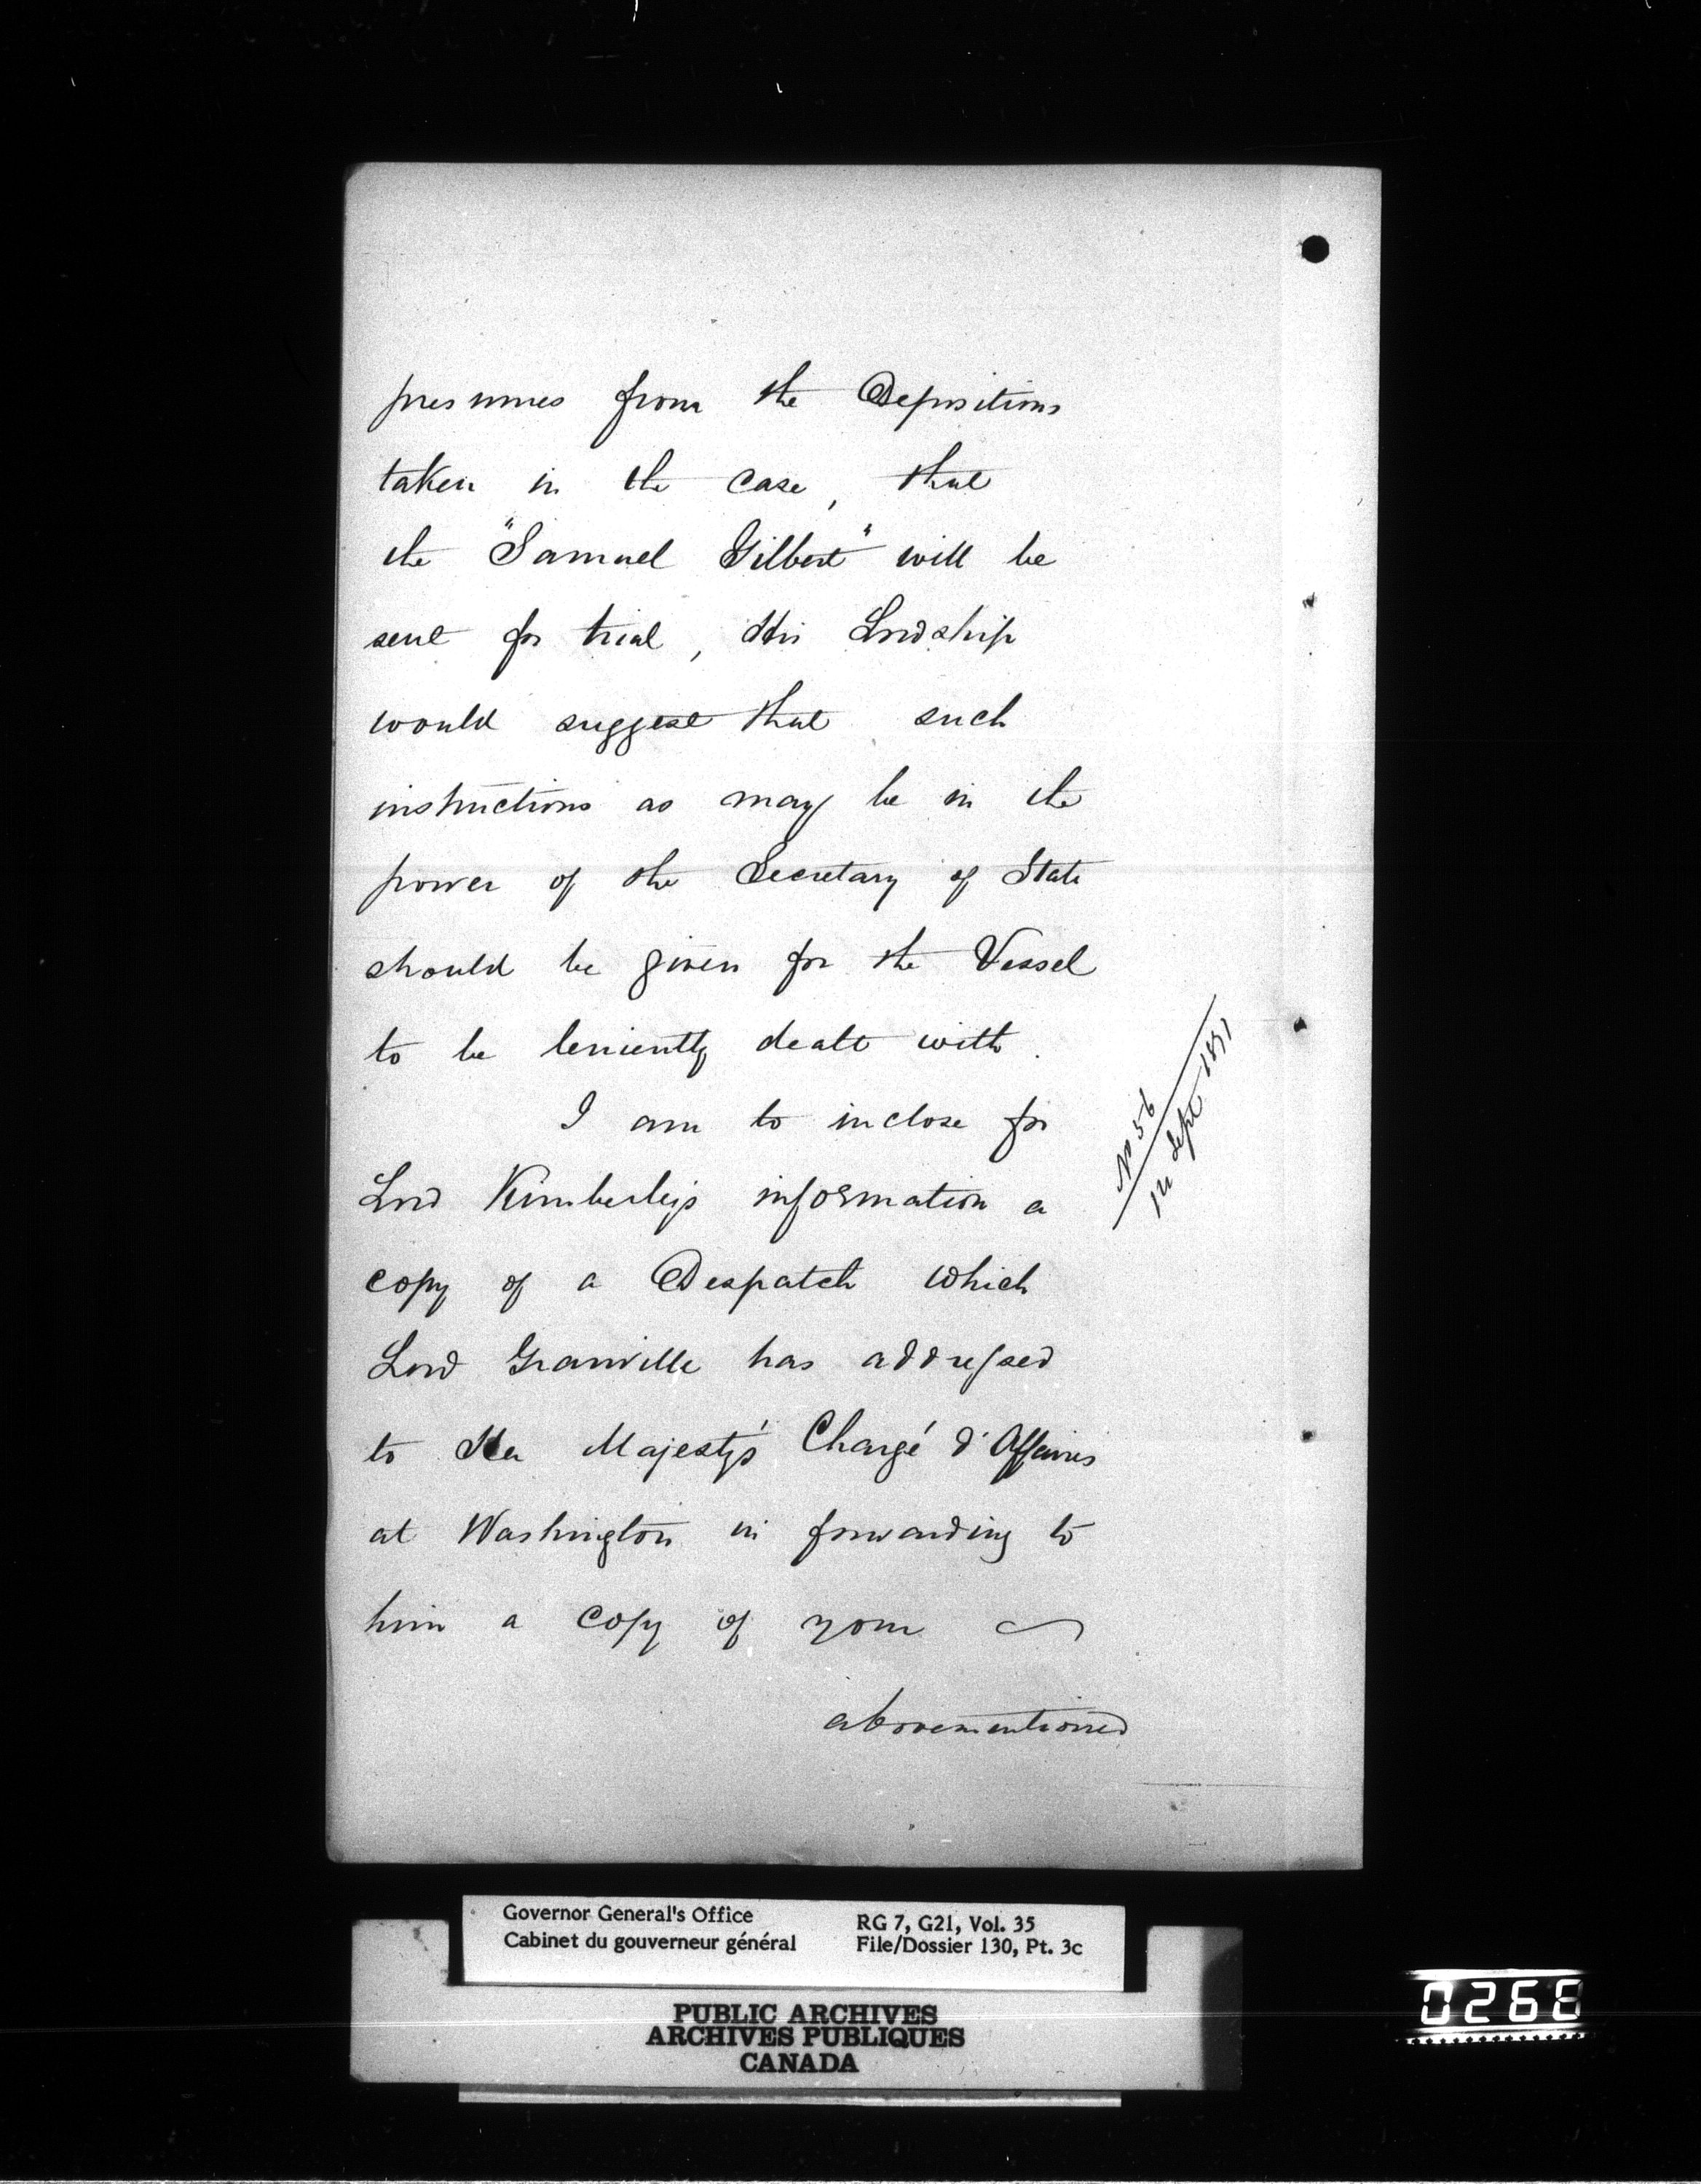 presumes from the Depositions
taken in the case, that
the "Samuel Gilbert" will be
sent for trial, His Lordship
would suggest that such
instructions as may be in the
power of the Secretary of State
should be given for the Vessel
to be leniently dealt with.
I am to inclose for
Lord Kimberley's information a
copy of a Despatch which
Lord Granville has addressed
to Her Majesty's Chargé d'Affaires
at Washington in forwarding to
him a copy of your
abovementioned
No 56
Sept 1871
Governor General's Office
Cabinet du gouverneur général
RG 7, G21, Vol. 35
File/Dossier 130, Pt. 3c
PUBLIC ARCHIVES
ARCHIVES PUBLIQUES
CANADA